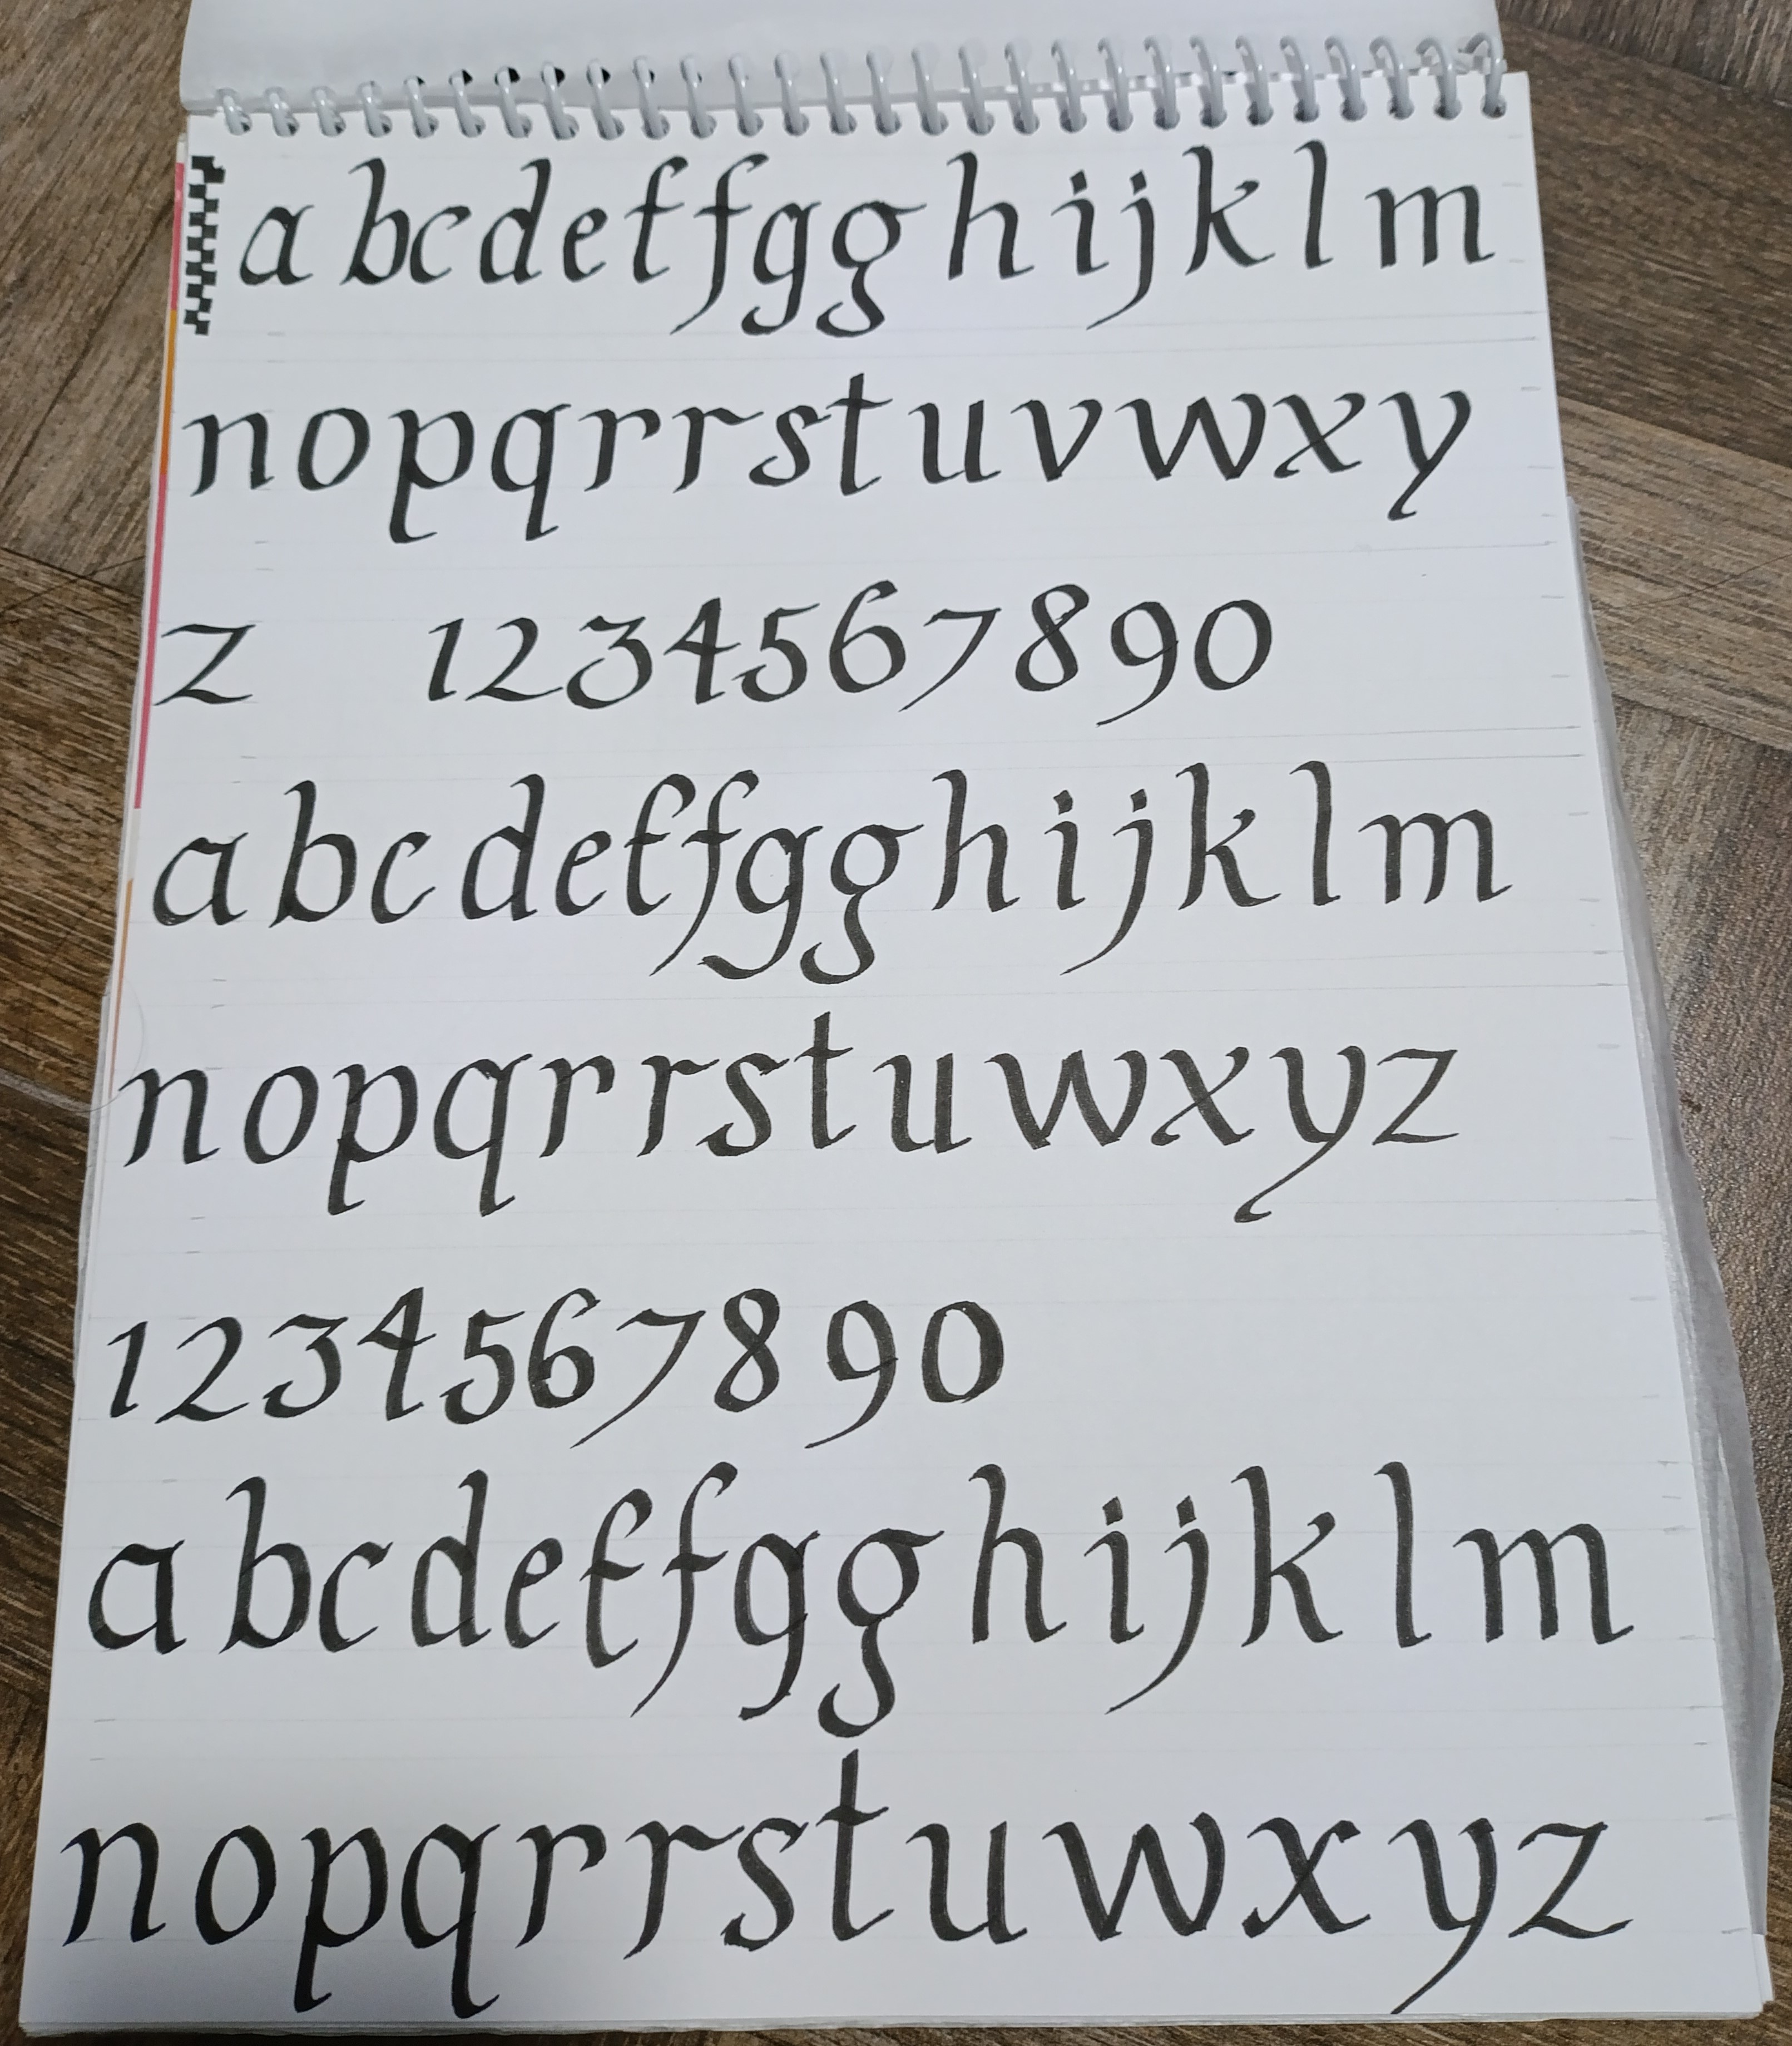 a b c d e f f g g h i j k l m
n o p q r r s t u v w x y
z 1 2 3 4 5 6 7 8 9 0
a b c d e f f g g h i j k l m
n o p q r r s t u w x y z
1 2 3 4 5 6 7 8 9 0
a b c d e f f g g h i j k l m
n o p q r r s t u w x y z